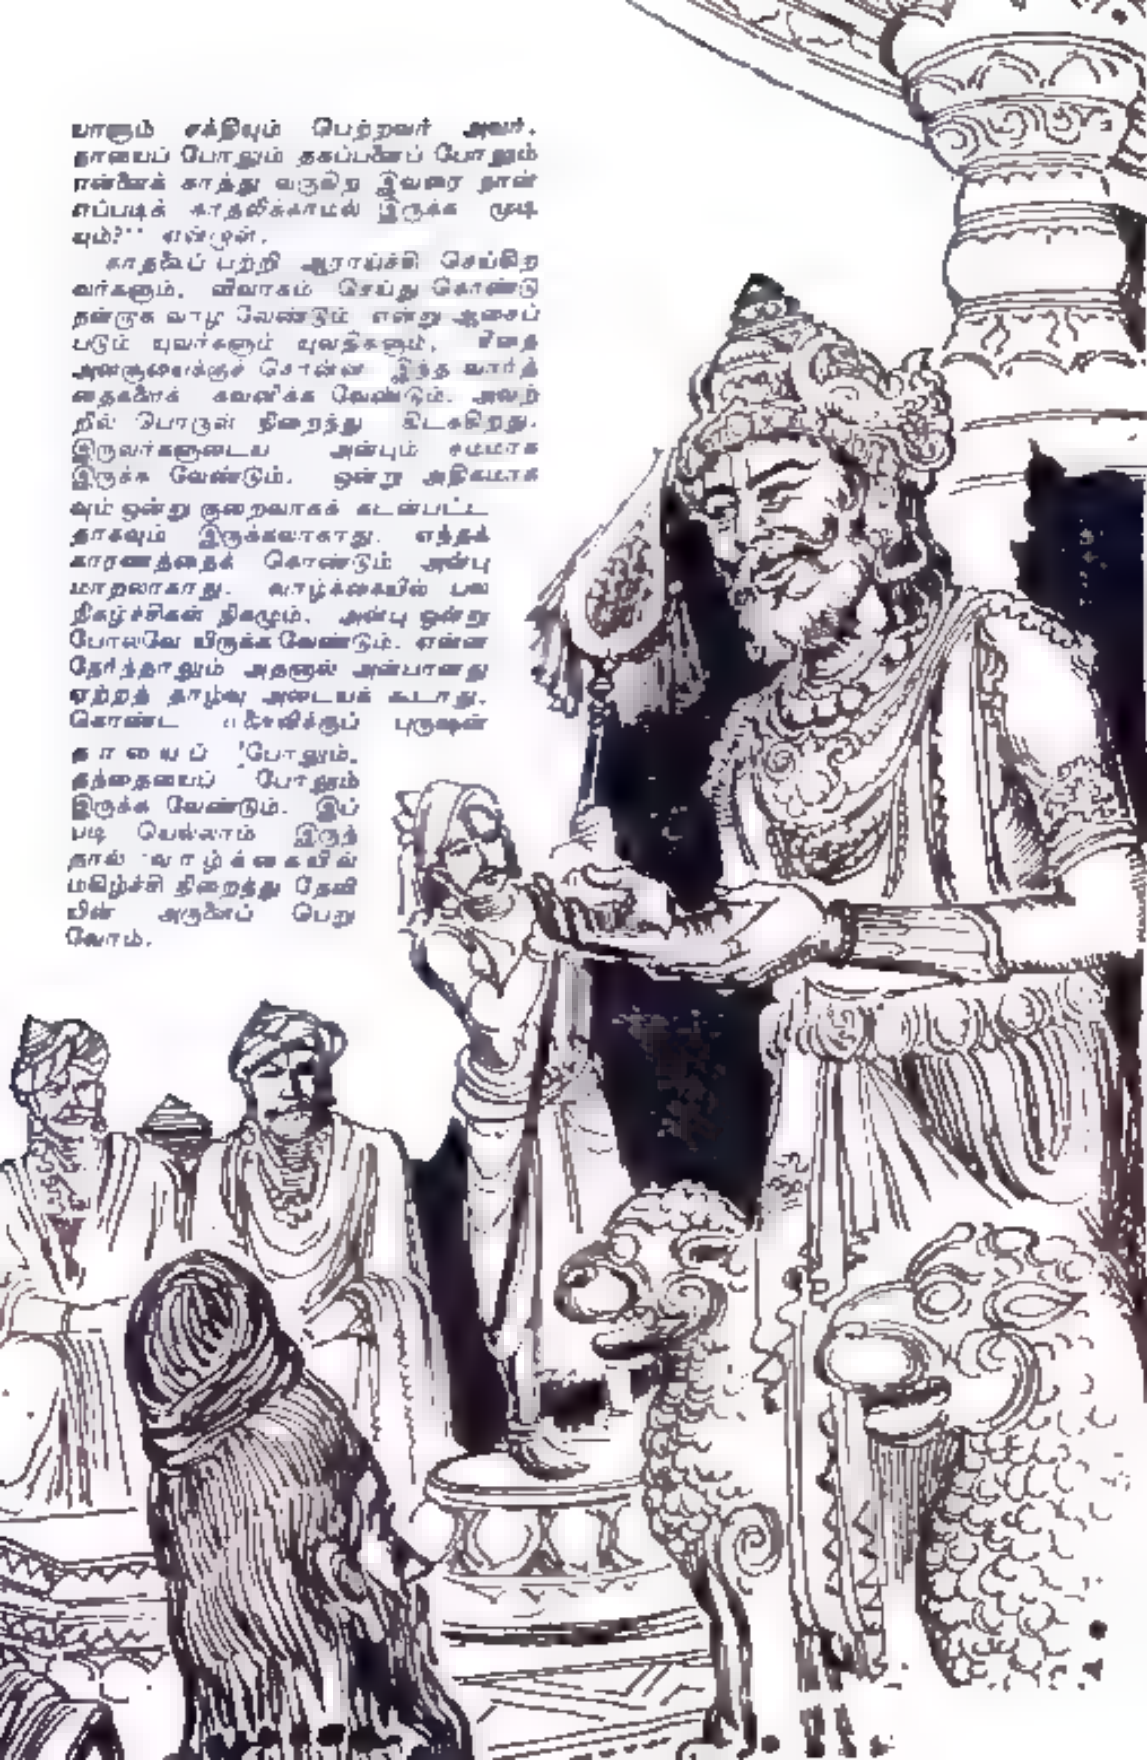 யாளும் சக்தியும் பெற்றவர் அவர்.
தாயைப் போலும் தகப்பனைப் போலும்
என்னைக் காத்து வருகிற இவரை நான்
எப்படிக் காதலிக்காமல் இருக்க முடி
யும்?'' என்றாள்.
காதலைப் பற்றி ஆராய்ச்சி செய்கிற
வர்களும், விவாகம் செய்து கொண்டு
நன்றாக வாழ வேண்டும் என்று ஆசைப்
படும் யுவர்களும் யுவதிகளும், சீதை
அனசூயைக்குச் சொன்ன இந்த வார்த்
தைகளைக் கவனிக்க வேண்டும். அவற்
றில் பொருள் நிறைந்து கிடக்கிறது.
இருவர்களுடைய அன்பும் சமமாக
இருக்க வேண்டும். ஒன்று அதிகமாக
வும் ஒன்று குறைவாகக் கடன்பட்ட
தாகவும் இருக்கலாகாது. எந்தக்
காரணத்தைக் கொண்டும் அன்பு
மாறலாகாது. வாழ்க்கையில் பல
நிகழ்ச்சிகள் நிகழும். அன்பு ஒன்று
போலவே யிருக்க வேண்டும். என்ன
நேர்ந்தாலும் அதனால் அன்பானது
ஏற்றத் தாழ்வு அடையக் கூடாது.
கொண்ட மனைவிக்குப் புருஷன்
தாயைப் போலும்,
தந்தையைப் போலும்
இருக்க வேண்டும். இப்
படி யெல்லாம் இருந்
தால் வாழ்க்கையில்
மகிழ்ச்சி நிறைந்து தேவி
யின் அருளைப் பெறு
வோம்.